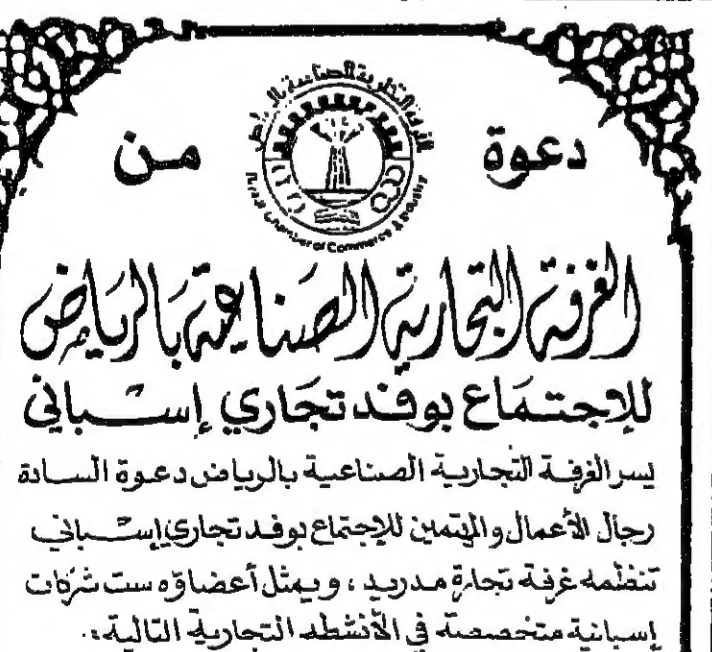 دعوة من
الغرفة التجارية الصناعية بالرياض
Riyadh Chamber of Commerce & Industry
الغرفة التجارية الصناعية بالرياض
للإجتماع بوفد تجاري إسباني
يسر الغرفة التجارية الصناعية بالرياض دعوة السادة
رجال الأعمال والمهتمين للإجتماع بوفد تجاري إسباني
تنظمه غرفة تجارة مدريد ، ويمثل أعضاؤه ست شركات
إسبانية متخصصة في الأنشطه التجارية التالية :-